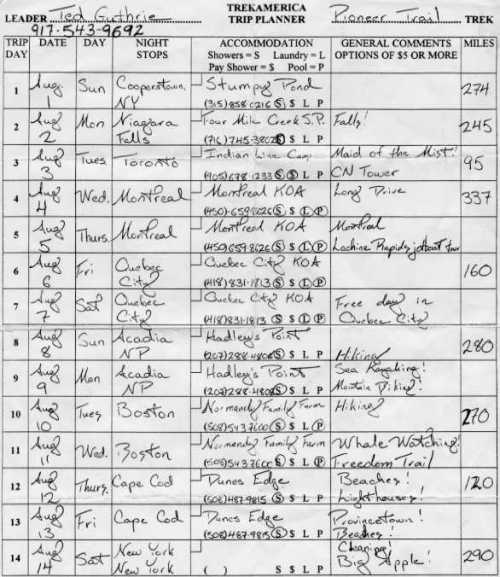 LEADER Ted Guthrie TREKAMERICA Pioneer Trail TREK
917-543-9692 TRIP PLANNER
TRIP DAY DATE DAY NIGHT STOPS ACCOMMODATION Showers=S Laundry=L Pay Shower=$ Pool=P GENERAL COMMENTS OPTIONS OF $5 OR MORE MILES
1 Aug 1 Sun Cooperstown, NY Stumpy Pond (315) 858-0216 S $ L P 274
2 Aug 2 Mon Niagara Falls Four Mile Creek S.P. (716) 745-3802 S $ L P Falls! 245
3 Aug 3 Tues Toronto Indian Line Camp (905) 678-1233 S $ L P Maid of the Mist! CN Tower 95
4 Aug 4 Wed. Montreal Montreal KOA (450)-659-8626 S $ L P Long Drive 337
5 Aug 5 Thurs. Montreal Montreal KOA (450) 659-8626 S $ L P Montreal Lachine Rapids jetboat tour
6 Aug 6 Fri Quebec City Quebec City KOA (418) 831-1813 S $ L P 160
7 Aug 7 Sat Quebec City Quebec City KOA (418) 831-1813 S $ L P Free day in Quebec City
8 Aug 8 Sun Acadia NP Hadley's Point (207) 288-4808 S $ L P Hiking 280
9 Aug 9 Mon Acadia NP Hadley's Point (207) 288-4808 S $ L P Sea Kayaking! Mountain Biking!
10 Aug 10 Tues Boston Normandy Family Farm (508) 543-7600 S $ L P Hiking 270
11 Aug 11 Wed. Boston Normandy Family Farm (508) 543-7600 S $ L P Whale Watching! Freedom Trail
12 Aug 12 Thurs. Cape Cod Dunes Edge (508) 487-9815 S $ L P Beaches! Lighthouses! 120
13 Aug 13 Fri Cape Cod Dunes Edge (508) 487-9815 S $ L P Provincetown! Beaches!
14 Aug 14 Sat New York New York ( ) S $ L P Big Apple! 290